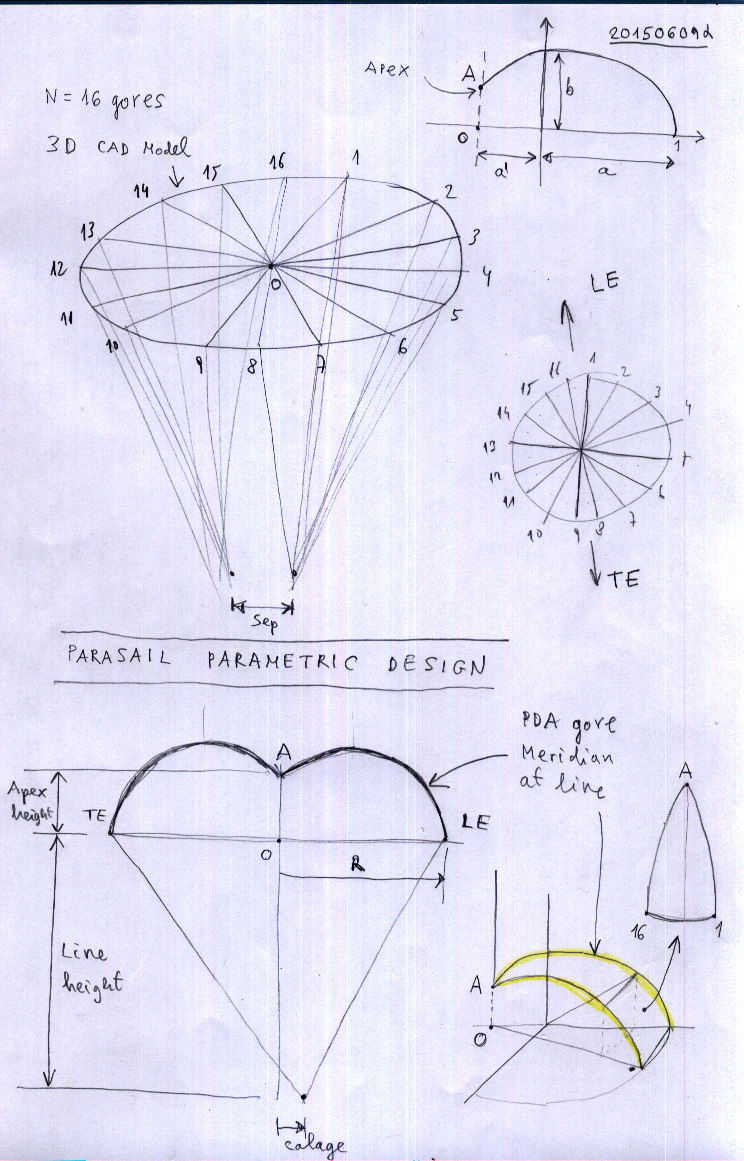 20150609d
Apex
A
b
O
1
a'
a
N=16 gores
3D CAD Model
14
15
16
1
2
13
3
12
O
4
11
5
10
9
8
7
6
LE
1
2
15
3
14
4
13
7
12
6
11
7
10
9
8
TE
Sep
PARASAIL PARAMETRIC DESIGN
PDA gore
Meridian
at line
A
Apex
height
TE
LE
O
R
A
16
1
Line
height
A
O
calage